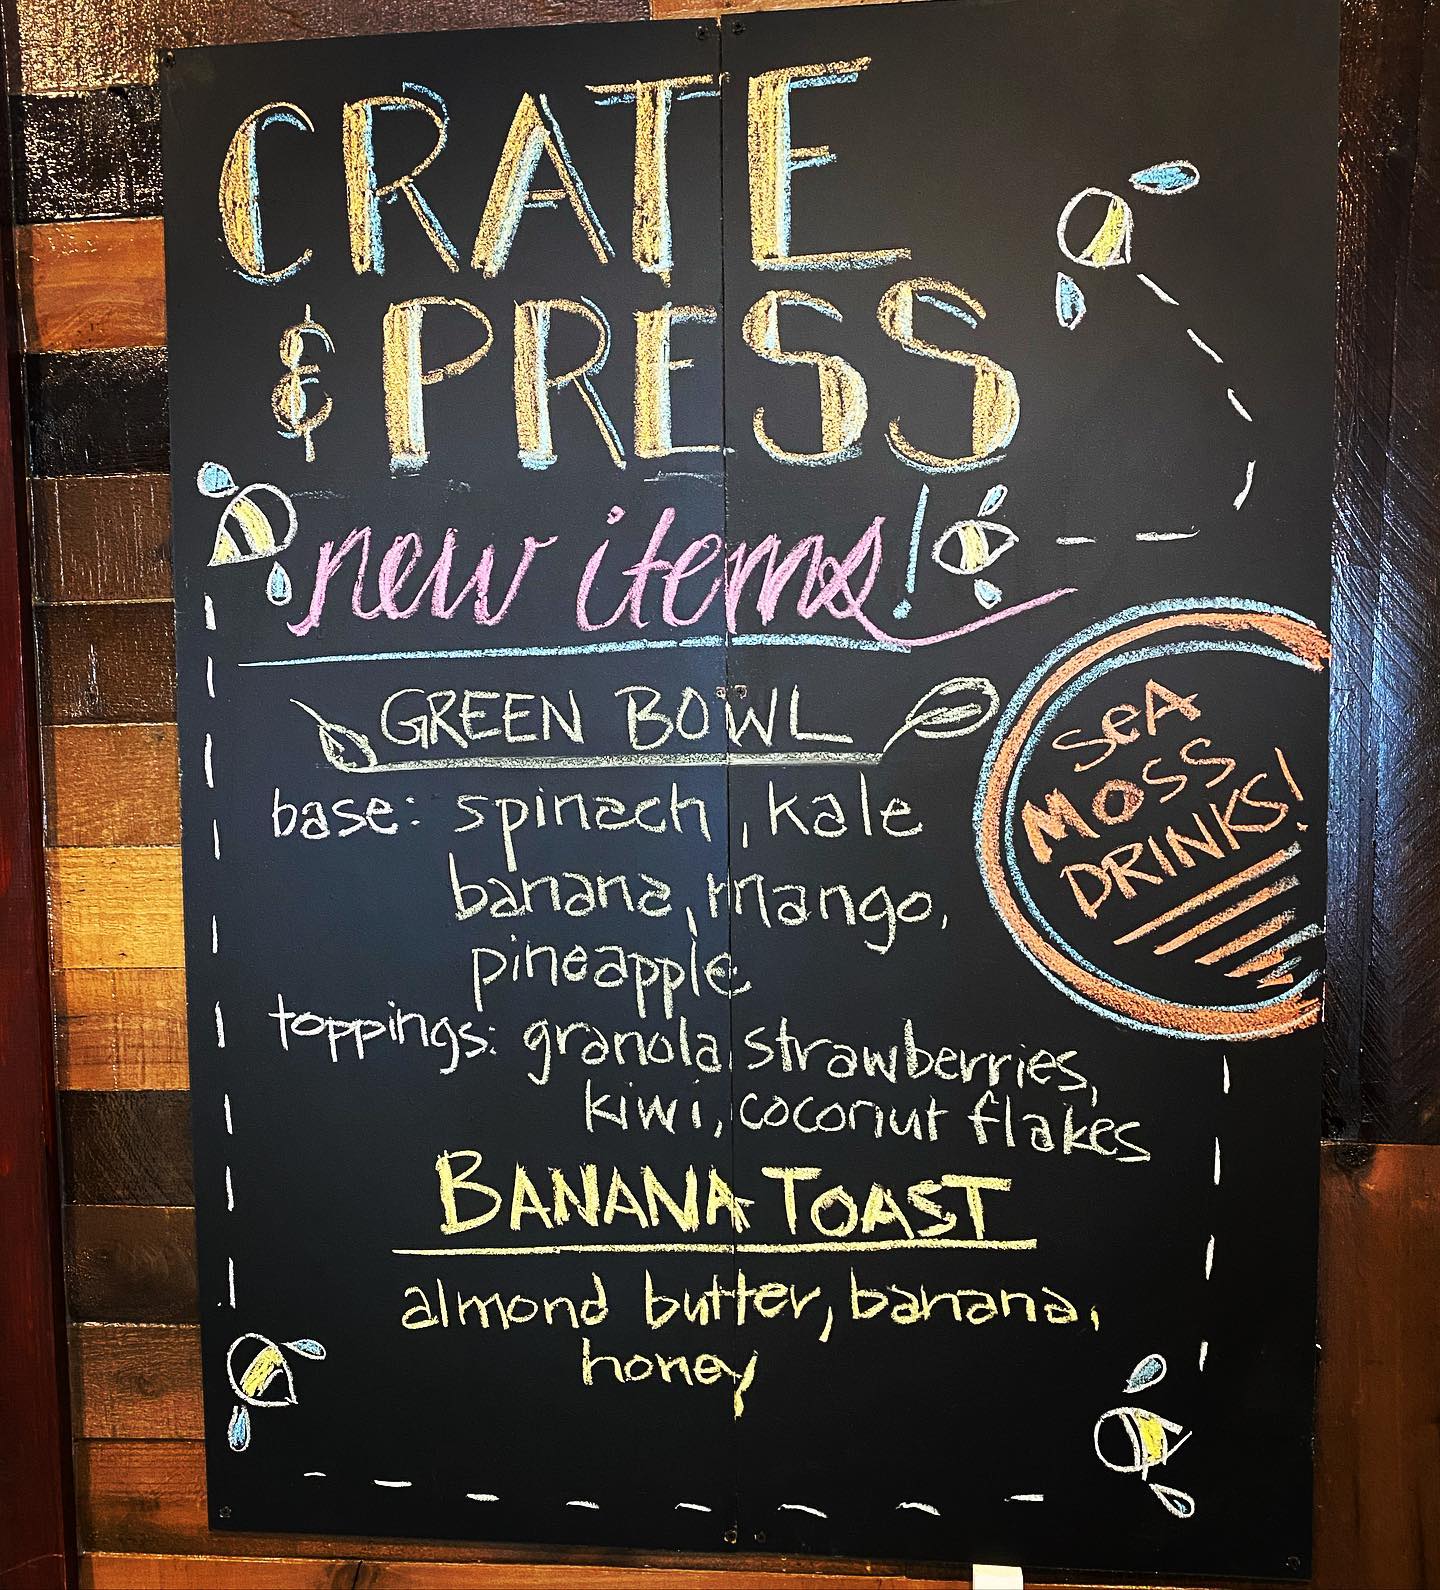 CRATE
& PRESS
new items!
GREEN BOWL
base: spinach, kale
banana, mango,
pineapple
toppings: granola, strawberries,
kiwi, coconut flakes
BANANA TOAST
almond butter, banana,
honey
SeA
MOSS
DRINKS!